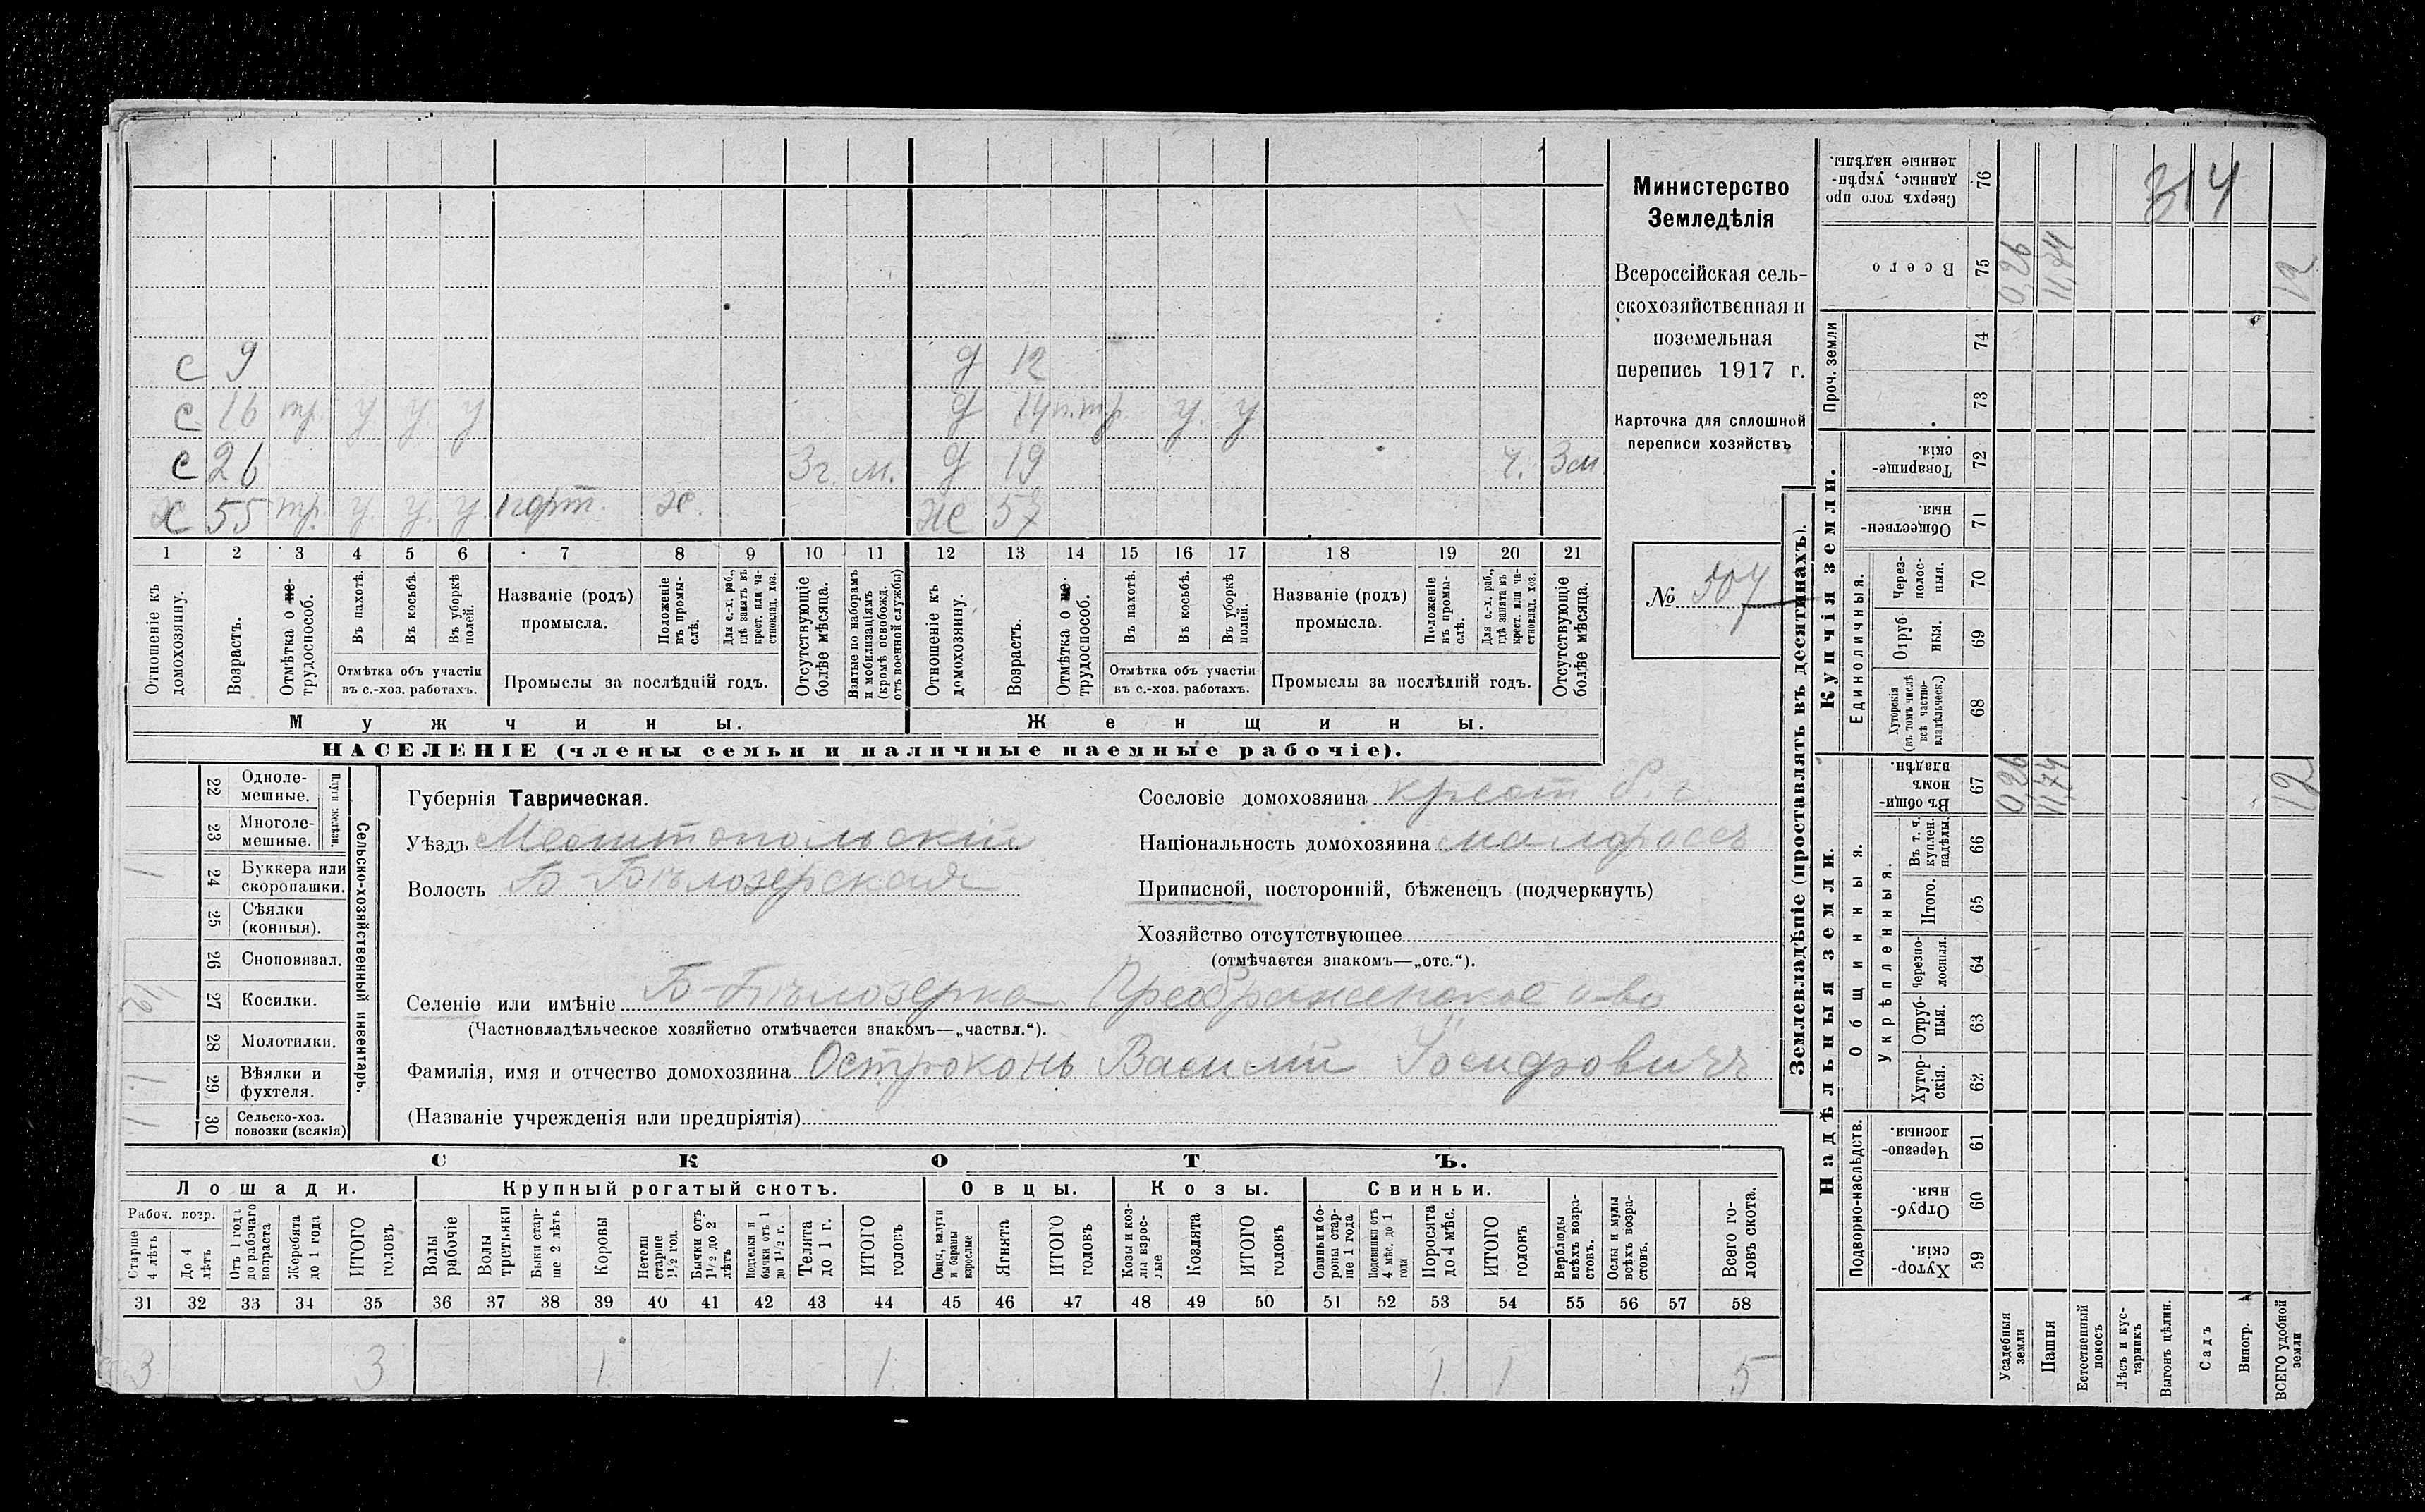 314
Министерство
Земледѣлія
Всероссійская сель-
скохозяйственная и
поземельная
перепись 1917 г.
Карточка для сплошной
переписи хозяйствъ
№ 507
с 9 д 12
с 16 тр. у у. у д 14 п.тр. у. у
с 26 3г. м. д 19 ч. 3м
х 55 тр. у. у. у. порт. х. ж 57
1 2 3 4 5 6 7 8 9 10 11 12 13 14 15 16 17 18 19 20 21
Отношеніе къ домохозяину.
Возрастъ.
Отмѣтка о не-трудоспособ.
Въ пахотѣ.
Въ косьбѣ.
Въ уборкѣ полей.
Отмѣтка объ участіи
въ с.-хоз. работахъ.
Названіе (родъ)
промысла.
Положеніе въ промы-слѣ.
Для с.-х. раб., гдѣ занятъ въ крест. или ча-стновлад. хоз.
Промыслы за послѣдній годъ.
Отсутствующіе болѣе мѣсяца.
Взятые по наборамъ и мобилизаціямъ (кромѣ освобожд. отъ военной службы)
Отношеніе къ домохозяину.
Возрастъ.
Отмѣтка о не-трудоспособ.
Въ пахотѣ.
Въ косьбѣ.
Въ уборкѣ полей.
Отмѣтка объ участіи
въ с.-хоз. работахъ.
Названіе (родъ)
промысла.
Положеніе въ промы-слѣ.
Для с.-х. раб., гдѣ занята въ крест. или ча-стновлад. хоз.
Промыслы за послѣдній годъ.
Отсутствующіе болѣе мѣсяца.
Мужчины. Женщины.
НАСЕЛЕНІЕ (члены семьи и наличные наемные рабочіе).
Сельско-хозяйственный инвентарь.
Плуги желѣзн.
22 Одноле-мешные.
23 Многоле-мешные.
24 Буккера или скоропашки. 1
25 Сѣялки (конныя).
26 Сноповязал.
27 Косилки. 1/2
28 Молотилки.
29 Вѣялки и фухтеля. 1
30 Сельско-хоз. повозки (всякія) 1
Губернія Таврическая.
Уѣздъ Мелитопольскій
Волость Б-Бѣлозерская
Сословіе домохозяина крест б. г.
Національность домохозяина малороссъ
Приписной, посторонній, бѣженецъ (подчеркнуть)
Хозяйство отсутствующее
(отмѣчается знакомъ—„отс.“).
Селеніе или имѣніе Б-Бѣлозерка Преображенское о-во
(Частновладѣльческое хозяйство отмѣчается знакомъ—„частвл.“).
Фамилія, имя и отчество домохозяина Остроконь Василій Іосифовичъ
(Названіе учрежденія или предпріятія)
СКОТЪ.
Лошади. Крупный рогатый скотъ. Овцы. Козы. Свиньи.
Рабоч. возр.
Старше 4 лѣтъ
До 4 лѣтъ
Отъ 1 года до рабочаго возраста
Жеребята до 1 года
ИТОГО головъ
Волы рабочіе
Волы третьяки
Быки стар-ше 2 лѣтъ
Коровы
Нетели старше 1 1/2 год.
Бычки отъ 1 1/2 до 2 лѣтъ
Подтелки и бычки отъ 1 до 1 1/2 г.
Телята до 1 г.
ИТОГО головъ
Овцы, валухи и бараны взрослые
Ягнята
ИТОГО головъ
Козы и коз-лы взрос-лые
Козлята
ИТОГО головъ
Свиньи и бо-ровы стар-ше 1 года
Подсвинки отъ 4 мѣс. до 1 года
Поросята до 4 мѣс.
ИТОГО головъ
Верблюды всѣхъ возра-стовъ.
Ослы и мулы всѣхъ возра-стовъ.
Всего го-ловъ скота.
31 32 33 34 35 36 37 38 39 40 41 42 43 44 45 46 47 48 49 50 51 52 53 54 55 56 57 58
3 3 1 1 1 1 5
Землевладѣніе (проставлять въ десятинахъ).
Сверхъ того про-данные, укрѣп-ленные надѣлы. 76
Всего 75 0,26 11,74 12
Проч. земли
74
73
Купчія земли.
Товарище-скія. 72
Обществен-ныя. 71
Единоличныя.
Через-полос-ныя. 70
Отруб-ныя. 69
Хуторскія (въ томъ числѣ всѣ частно-владѣльческ.) 68
Надѣльныя земли.
Общинныя.
Въ общи-номъ владѣн. 67 0,26 11,74 12
Укрѣпленныя.
Въ т. ч. куплен. надѣлы 66
Итого. 65
Черезпо-лосныя. 64
Отруб-ныя. 63
Хутор-скія. 62
Подворно-наслѣдств.
Черезпо-лосныя. 61
Отруб-ныя. 60
Хутор-скія. 59
Усадебныя земли
Пашня
Естественный покосъ
Лѣсъ и кус-тарникъ
Выгонъ цѣлин.
Садъ
Виногр.
ВСЕГО удобной земли